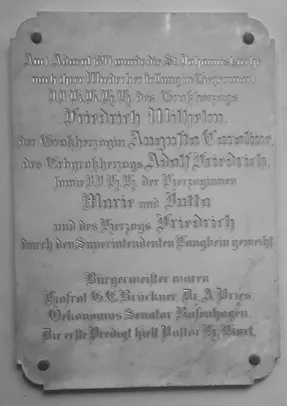 Am 1. Advent 1894 wurde die St. Johanniskirche
nach ihrer Wiederherstellung in Gegenwart
I.I.K.K.H.H. des Großherzogs
Friedrich Wilhelm,
der Großherzogin Augusta Caroline,
des Erbgroßherzogs Adolf Friedrich,
sowie I.I.H.H. der Herzoginnen
Marie und Jutta
und des Herzogs Friedrich
durch den Superintendenten Langbein geweiht.
Bürgermeister waren
Hofrat G.C. Brückner, Dr. A. Pries.
Oekonomus Senator Rosenhagen.
Die erste Predigt hielt Pastor H.